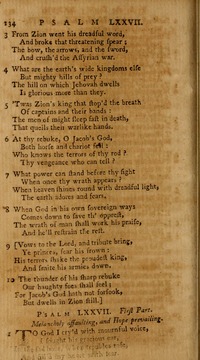 234 PSALM LXXVII.
3 From Zion went his dreadful word,
And broke that threatening spear:
The bow, the arrows, and the sword,
And crush'd the Assyrian war.
4 What are the earth's wide kingdoms else
But mighty hills of prey?
The hill on which Jehovah dwells
Is glorious more than they.
5 'Twas Zion's king that stop'd the breath
Of captains and their bands:
The men of might sleep fast in death,
That quells their warlike hands.
6 At thy rebuke, O Jacob's God,
Both horse and chariot fell:
Who knows the terrors of thy rod?
Thy vengeance who can tell?
7 What power can stand before thy sight
When once thy wrath appears?
When heaven shines round with dreadful light,
The earth adores and fears.
8 When God in his own sovereign ways
Comes down to save th' opprest,
The wrath of man shall work his praise,
And he'll restrain the rest.
9 [Vows to the Lord, and tribute bring,
Ye princes, fear his frown:
His terrors shake the proudest king,
And smite his armies down.
10 The thunder of his sharp rebuke
Our haughty foes shall feel;
For Jacob's God hath not forsook,
But dwells in Zion still.]
PSALM LXXVII. First Part.
Melancholy assaulting, and Hope prevailing.
1 TO God I cry'd with mournful voice,